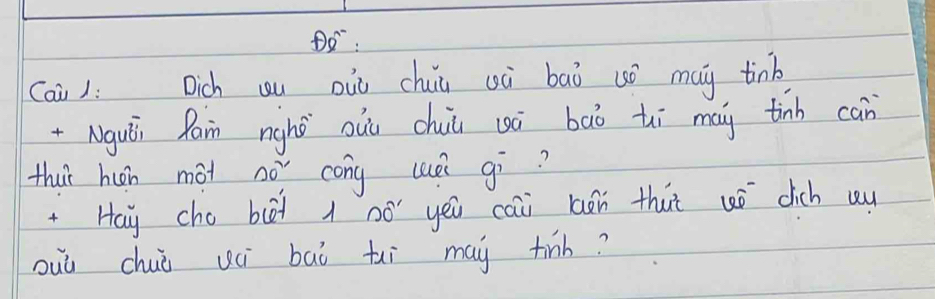 Đề:
Câu 1: Dịch vụ sửa chữa và bảo vệ máy tính
+ Người làm nghề sửa chữa và bảo trì máy tính cần
thực hiện một số công việc gì?
+ Hãy cho biết 1 số yêu cầu kiến thức về dịch vụ
sửa chữa và bảo trì máy tính?